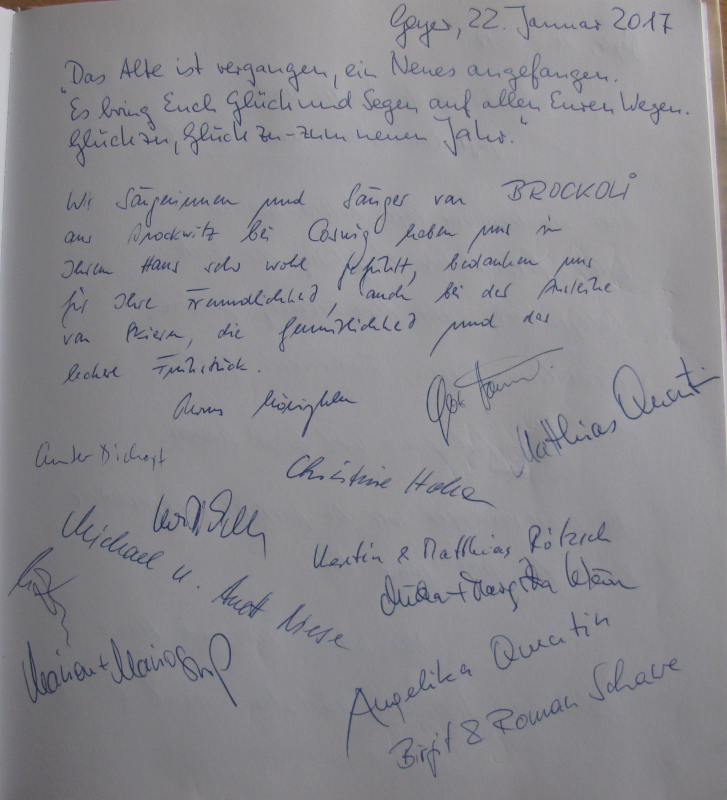 Geyer, 22. Januar 2017
"Das Alte ist vergangen, ein Neues angefangen.
"Es bring Euch Glück und Segen auf allen Euren Wegen.
Glück zu, Glück zu - zum neuen Jahr."
Wir Sängerinnen und Sänger von BROCKOLI
aus Brockwitz bei Coswig haben uns in
Ihrem Haus sehr wohl gefühlt, bedanken uns
für Ihre Freundlichkeit, auch bei der Ausleihe
von Skiern, die Gemütlichkeit und das
leckere Frühstück.
Matthias Quentin
Christine
Kerstin & Matthias Rötzsch
Michael u.
Marion + Mario
Angelika Quentin
Birgit & Roman Schawe